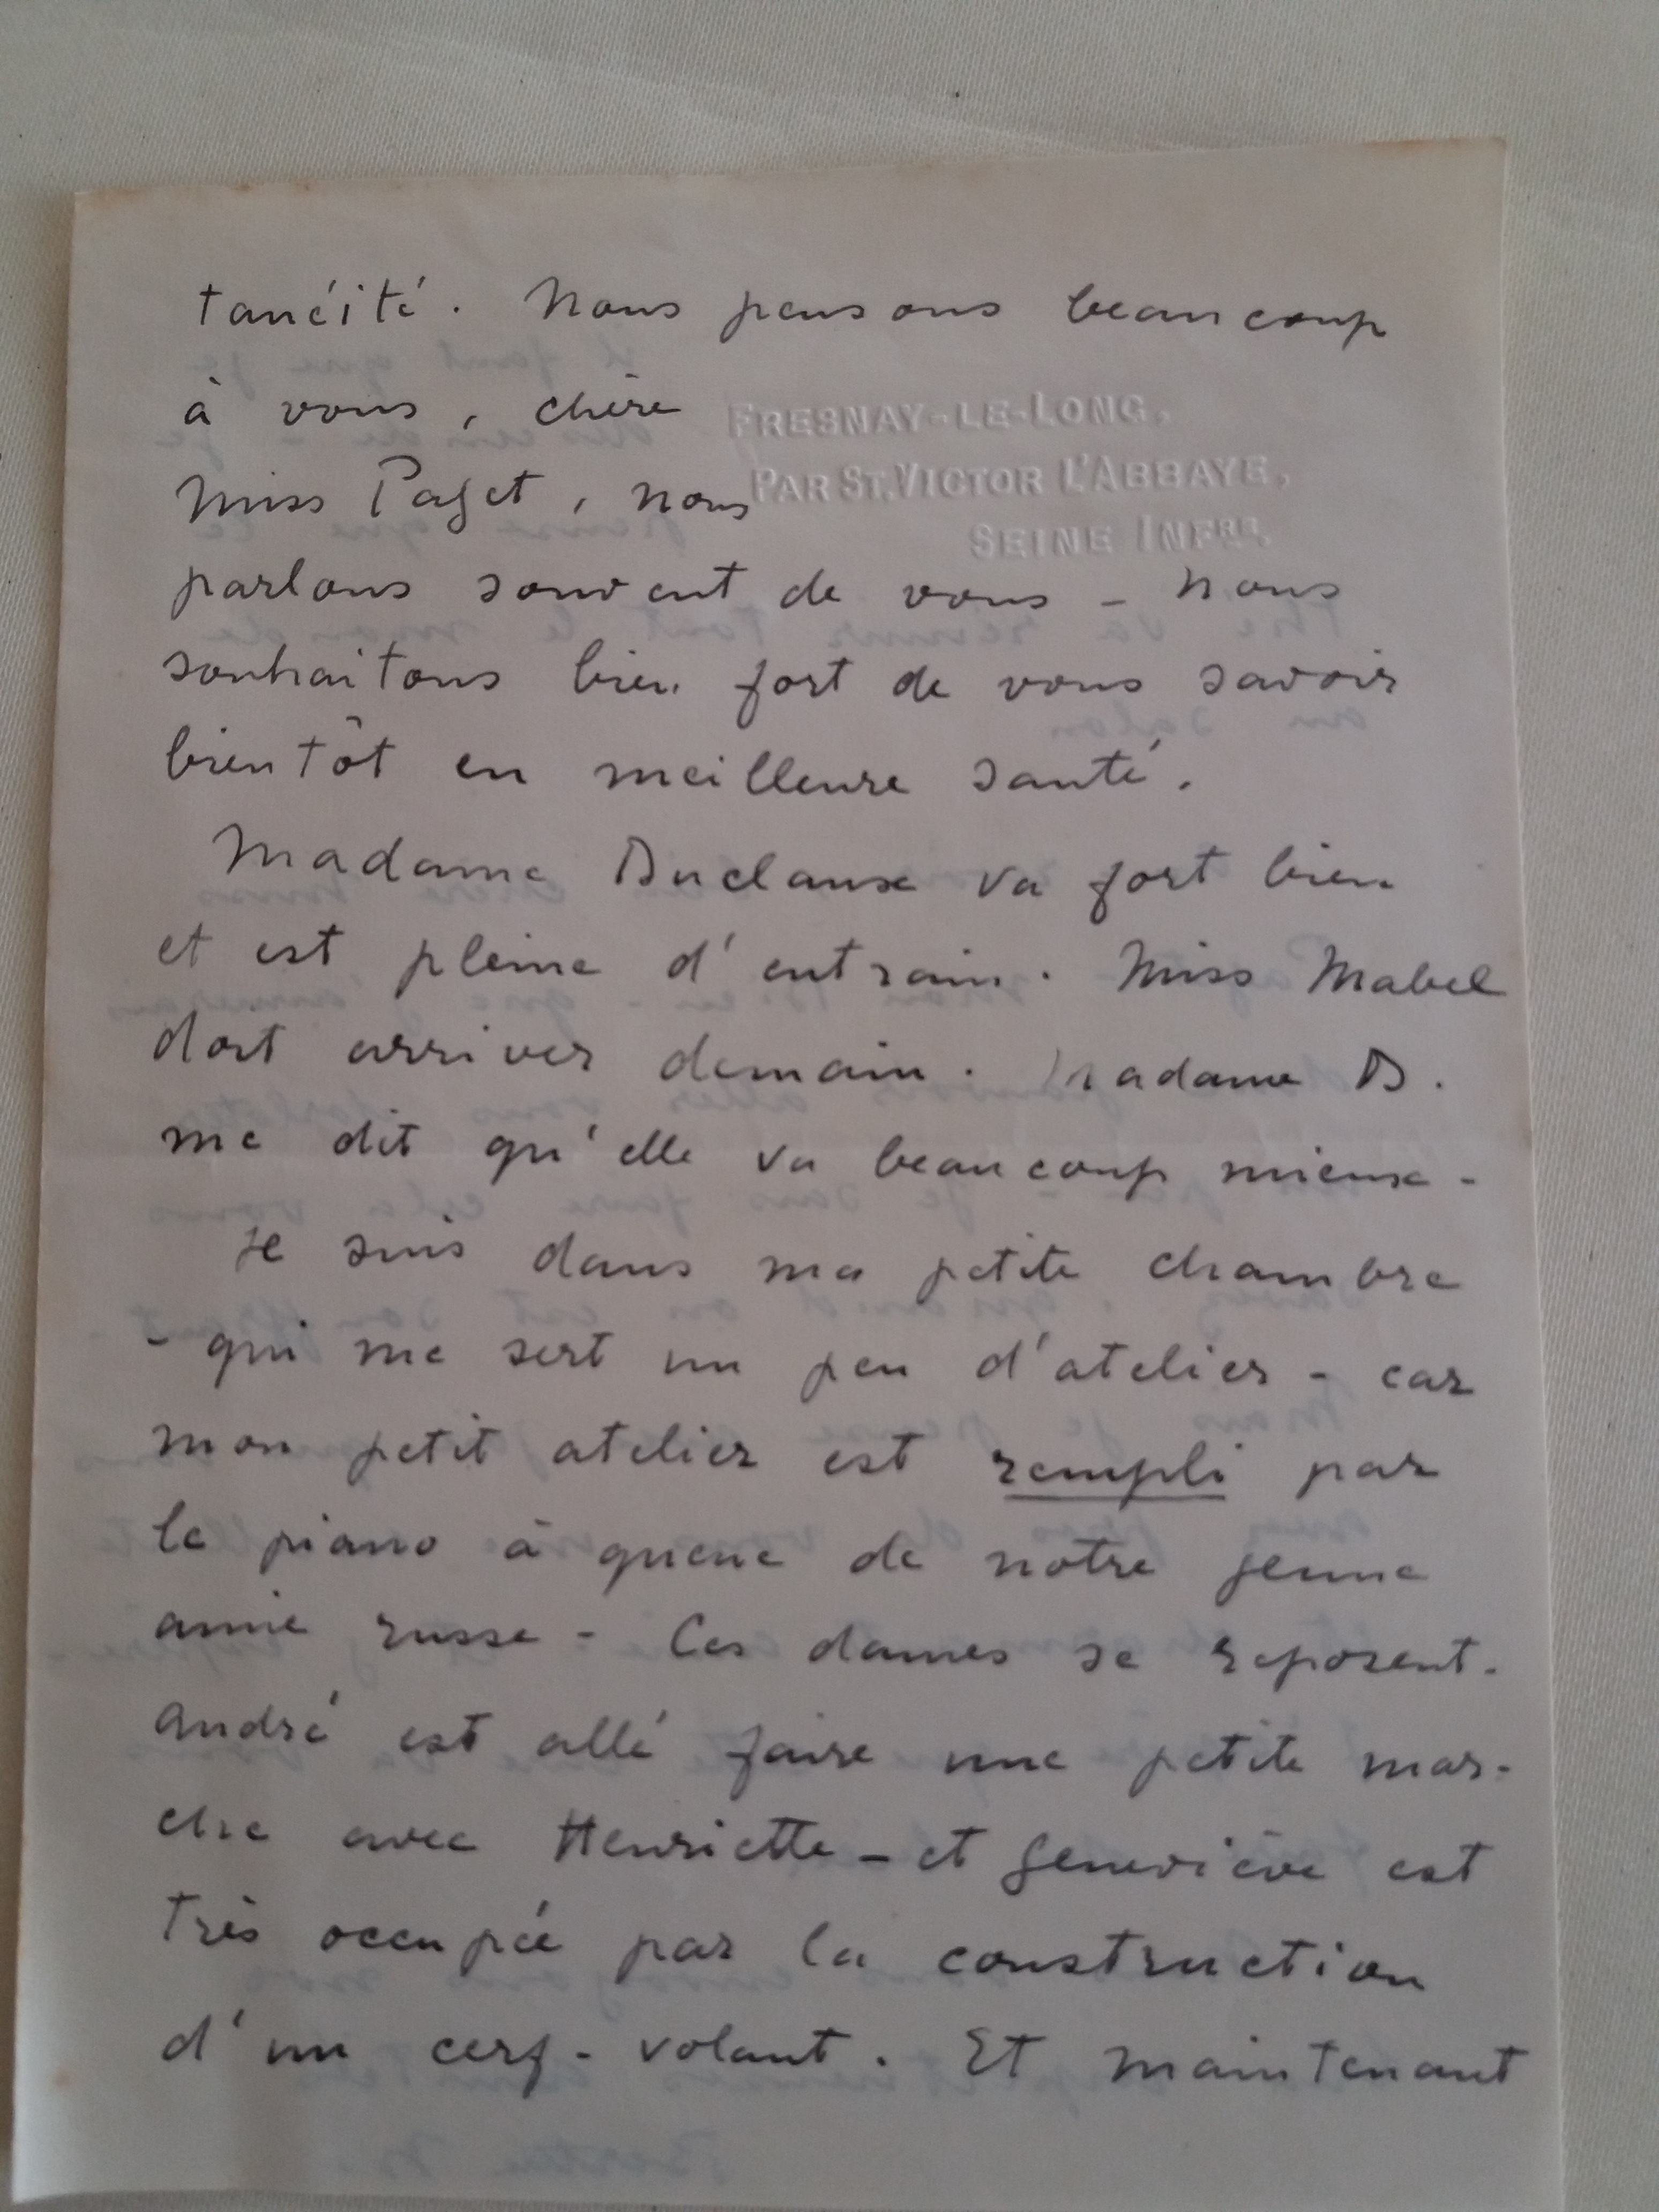 tanéité. Nous pensons beaucoup
à vous, chère
FRESNAY-LE-LONG,
PAR ST. VICTOR L'ABBAYE,
SEINE INFRE.
Miss Paget, nous
parlons souvent de vous - nous
souhaitons bien fort de vous savoir
bientôt en meilleure santé.
Madame Duclaux va fort bien
et est pleine d'entrain. Miss Mabel
doit arriver demain. Madame D.
me dit qu'elle va beaucoup mieux -
Je suis dans ma petite chambre
- qui me sert un peu d'atelier - car
mon petit atelier est rempli par
le piano à queue de notre jeune
amie russe - Ces dames se reposent.
André est allé faire une petite mar-
che avec Henriette - et Geneviève est
très occupée par la construction
d'un cerf-volant. Et maintenant